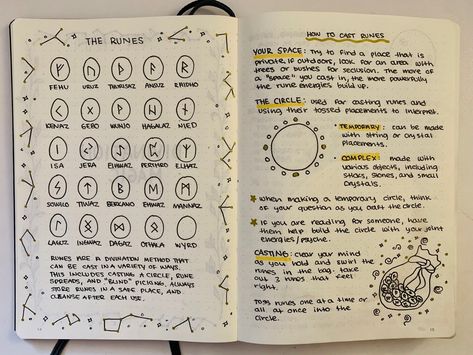 THE RUNES
FEHU URUZ THURISAZ ANSUZ RAIDHO
KENAZ GEBO WUNJO HAGALAZ NIED
ISA JERA EIHWAZ PERTHRO ELHAZ
SOWILO TIWAZ BERCANO EHWAZ MANNAZ
LAGUZ INGWAZ DAGAZ OTHALA WYRD
RUNES ARE A DIVINATION METHOD THAT
CAN BE CAST IN A VARIETY OF WAYS.
THIS INCLUDES CASTING A CIRCLE, RUNE
SPREADS, AND "BLIND" PICKING, ALWAYS
STORE RUNES IN A SAFE PLACE, AND
CLEANSE AFTER EACH USE.
HOW TO CAST RUNES
YOUR SPACE: Try to find a place that is
private, if outdoors, look for an area with
trees or bushes for seclusion. The more
of a "space" you cast in, the more powerfully
the rune energies build up.
THE CIRCLE: used for casting runes and
using their tossed placements to interpret.
TEMPORARY: can be made
with string or crystal
placements.
COMPLEX: made with
various objects, including
sticks, stones, and small
crystals.
When making a temporary circle, think
of your question as you craft the circle.
If you are reading for someone, have
them help build the circle with your joint
energies/psyche.
CASTING: clear your mind
as you hold and swirl the
runes in the bag. take
out 3 runes that feel
right.
TOSS runes one at a time or
all at once into the
circle.